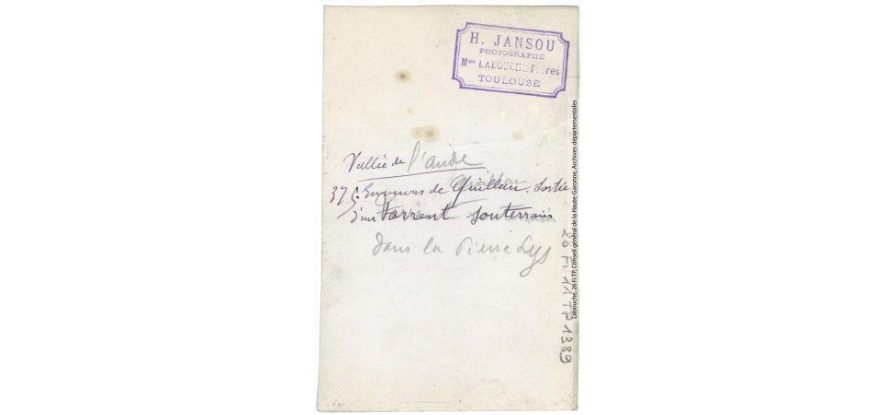 H. JANSOU
PHOTOGRAPHE
Mon LABOUCHE Frères
TOULOUSE
Vallée de l'aude
37 Environs de Quillan. Sortie
d'un torrent souterrain
dans la Pierre Lys
26 FI 11 TP 1339
Labouche, 26 FI TP, Conseil général de la Haute-Garonne, Archives départementales